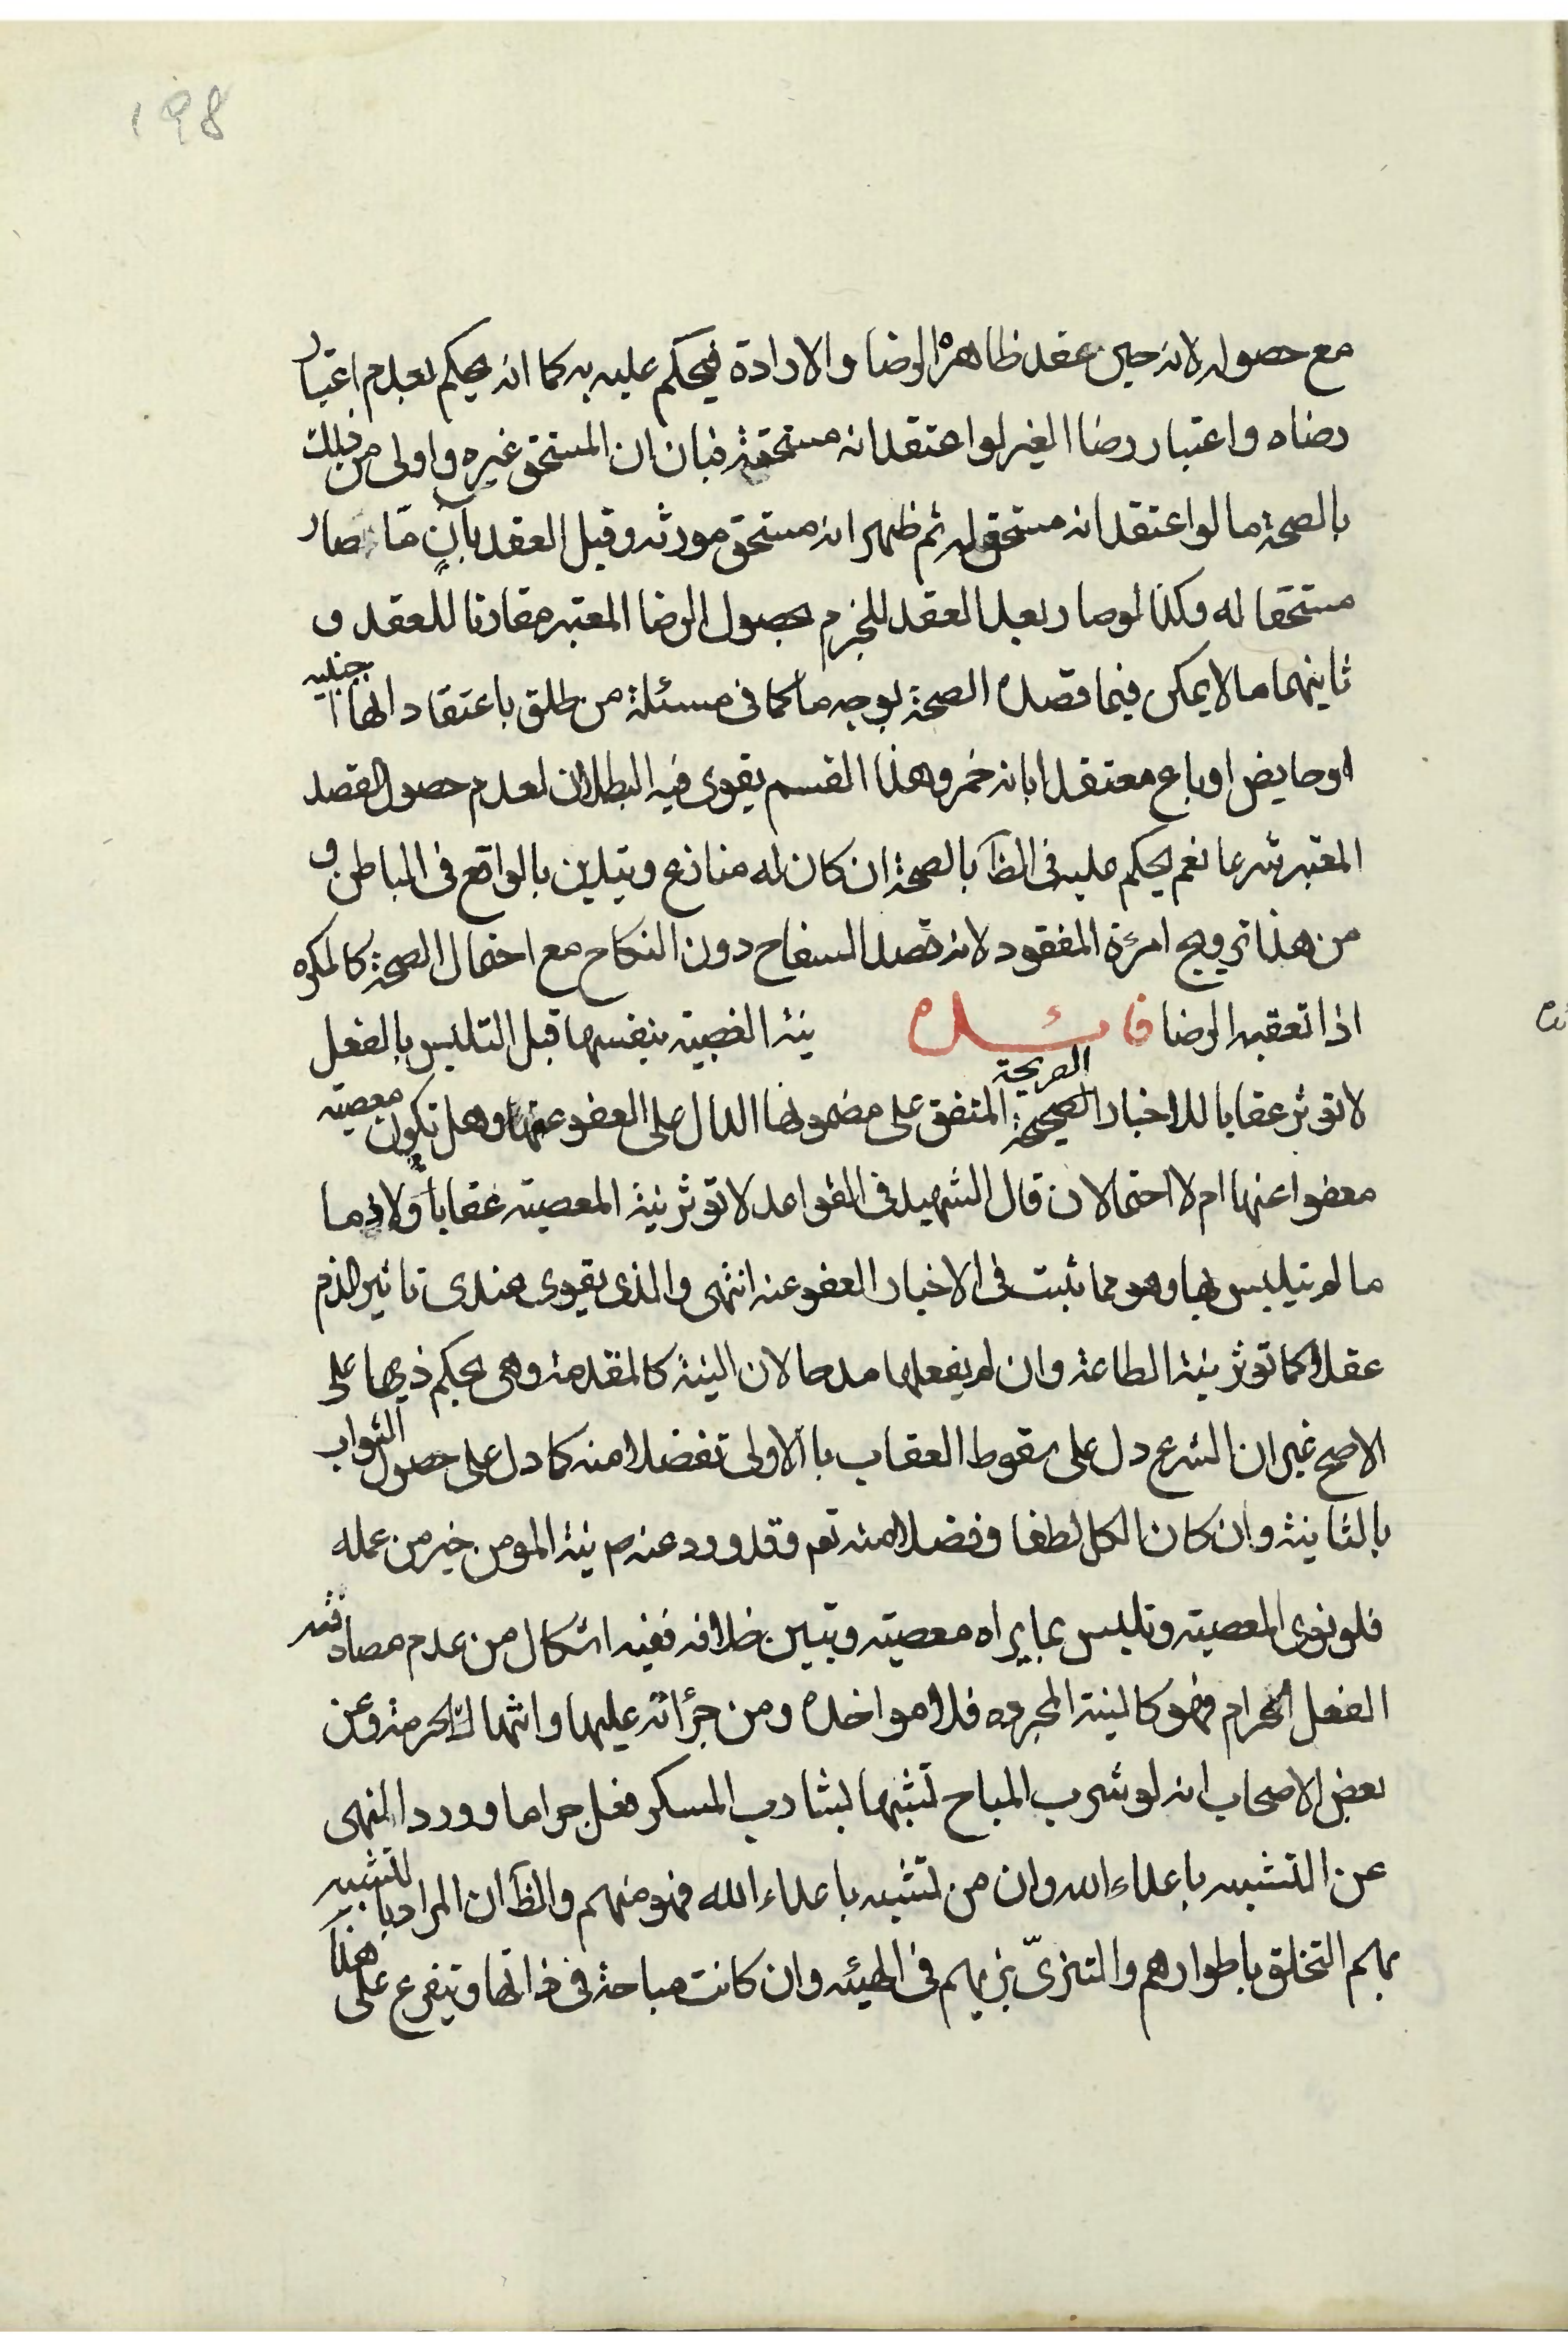 198
مع حصوله لانه حين عقد ظاهره الرضا والارادة فيحكم عليه به كما انه يحكم بعدم اعتبار
رضاه واعتبار رضا الغير لو اعتقد انه مستحقه فبان ان المستحق غيره واولى من ذلك
بالصحة ما لو اعتقد انه مستحق له ثم ظهر انه مستحق مورثه وقبل العقد بآنٍ مّا صار
مستحقا له وكذا لو صار بعد العقد للجزم بحصول الرضا المعتبر مقارنا للعقد و
ثانيهما ما لا يمكن فيما قصده الصحة بوجه ما كما فى مسئلة من طلق باعتقاد انها اجنبيه
او حايض او باع معتقدا بانه خمر وهذا القسم يقوى فيه البطلان لعدم حصول القصد
المعتبر شرعا نعم يحكم عليه فى الظآ بالصحة ان كان له منازع ويتدين بالواقع فى الباطن و
من هذا تزويج امرءة المفقود لانه قصد السفاح دون النكاح مع احتمال الصحة كالمكره
اذا تعقبه الرضا فائده نية المعصية بنفسها قبل التلبس بالفعل
لا تؤثر عقابا للاخبار الصحيحة الصريحة المتفق على مضمونها الدال على العفو عنها وهل تكون معصية
معفوا عنها ام لا احتمالان قال الشهيد فى القواعد لا تؤثر نية المعصية عقاباً ولا ذما
ما لم يتلبس بها وهو مما ثبت فى الاخبار العفو عنه انتهى والذى يقوى عندى تاثير الذم
عقلا كما تؤثر نية الطاعة وان لم يفعلها مدحا لان النية كالمقدمة وهى بحكم ذيها على
الاصح غير ان الشرع دل على سقوط العقاب با الاولى تفضلا منه كما دل على حصول الثواب
بالثانية وان كان الكل لطفا وفضلا منه تع وقد ورد عنه ص نية المومن خير من عمله
فلو نوى المعصية وتلبس بما يراه معصية وتبين خلافه ففيه اشكال من عدم مصادفته
الفعل الحرام فهو كالنية المجرده فلا مواخده ومن جرأته عليها وانتهاك الحرمة وعن
بعض الاصحاب انه لو شرب المباح تشبها بشارب المسكر فعل حراما وورد النهى
عن التشبه باعداء الله وان من تشبه باعداء الله فهو منهم والظآ ان المراد بالتشبه
بهم التخلق باطوارهم والتزىّ بزيهم فى الهيئه وان كانت مباحة فى ذاتها ويتفرع على هذا